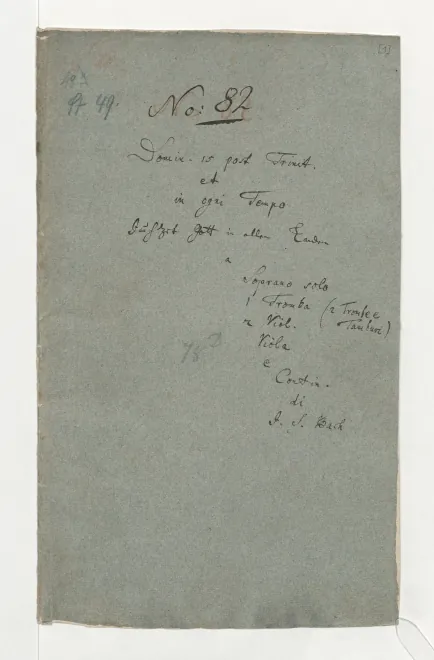 [1]
No: 82
Domin. 15 post Trinit.
et
in ogni Tempo
Jauchzet Gott in allen Landen
a
Soprano solo
1 Tromba (2 Trombe e
2 Viol. Tamburi.)
Viola
e
Contin.
di
J. S. Bach